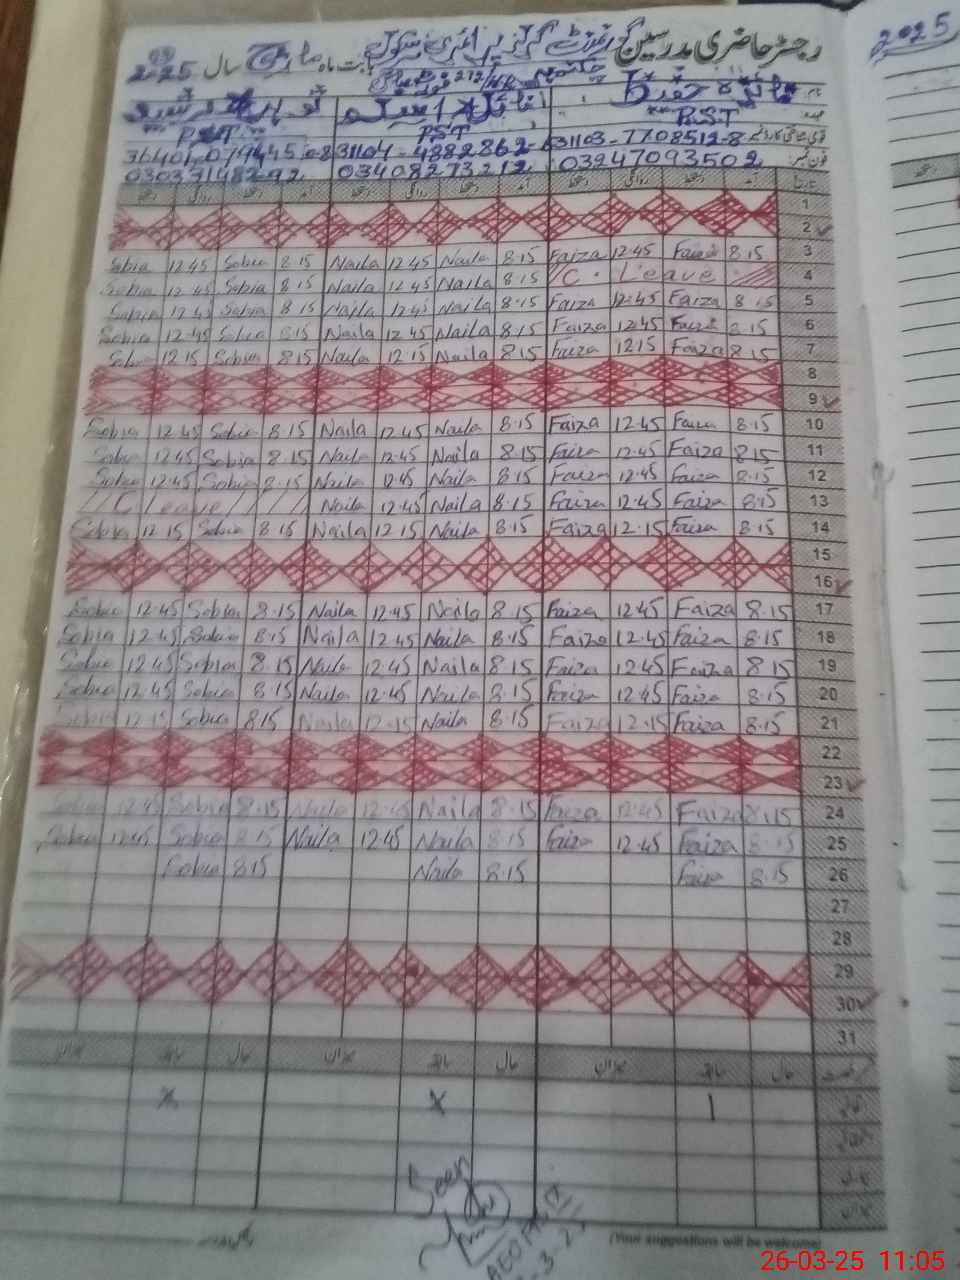 2025
رجسٹر حاضری مدرسین گورنمنٹ گرلز پرائمری سکول بابت ماہ مارچ سال 2025
فائزہ حفیظ نائلہ اسلم
P.S.T P.S.T P.S.T
31103-7708512-8 31104-4882862-
03247093502 03408273212 03037148292
1
2
3 8.15 Faiza 12.45 Faiza 8.15 Naila 12.45 Naila 8.15 Sobia 12.45 Sobia
4 C. Leave 8.15 Naila 12.45 Naila 8.15 Sobia 12.45 Sobia
5 8.15 Faiza 12.45 Faiza 8.15 Naila 12.45 Naila 8.15 Sobia 12.45 Sobia
6 8.15 Faiza 12.45 Faiza 8.15 Naila 12.45 Naila 8.15 Sobia 12.45 Sobia
7 8.15 Faiza 12.15 Faiza 8.15 Naila 12.15 Naila 8.15 Sobia 12.15 Sobia
8
9
10 8.15 Faiza 12.45 Faiza 8.15 Naila 12.45 Naila 8.15 Sobia 12.45 Sobia
11 8.15 Faiza 12.45 Faiza 8.15 Naila 12.45 Naila 8.15 Sobia 12.45 Sobia
12 8.15 Faiza 12.45 Faiza 8.15 Naila 12.45 Naila 8.15 Sobia 12.45 Sobia
13 8.15 Faiza 12.45 Faiza 8.15 Naila 12.45 Naila C Leave
14 8.15 Faiza 12.15 Faiza 8.15 Naila 12.15 Naila 8.15 Sobia 12.15 Sobia
15
16
17 8.15 Faiza 12.45 Faiza 8.15 Naila 12.45 Naila 8.15 Sobia 12.45 Sobia
18 8.15 Faiza 12.45 Faiza 8.15 Naila 12.45 Naila 8.15 Sobia 12.45 Sobia
19 8.15 Faiza 12.45 Faiza 8.15 Naila 12.45 Naila 8.15 Sobia 12.45 Sobia
20 8.15 Faiza 12.45 Faiza 8.15 Naila 12.45 Naila 8.15 Sobia 12.45 Sobia
21 8.15 Faiza 12.15 Faiza 8.15 Naila 12.15 Naila 8.15 Sobia 12.15 Sobia
22
23
24 8.15 Faiza 12.45 Faiza 8.15 Naila 12.45 Naila 8.15 Sobia 12.45 Sobia
25 8.15 Faiza 12.45 Faiza 8.15 Naila 12.45 Naila 8.15 Sobia 12.45 Sobia
26 8.15 Faiza 8.15 Naila 8.15 Sobia
27
28
29
30
31
حال سابقہ میزان حال سابقہ میزان
1 x x
Seen
AEO
(Your suggestions will be welcome)
26-03-25 11:05